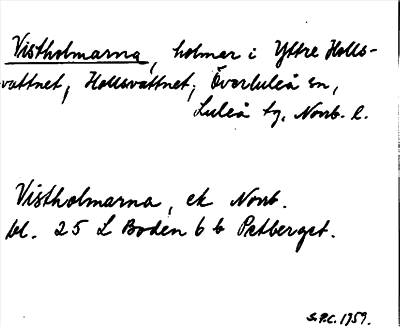 Vistholmarna, holmar i Yttre Holls-
vattnet, Hollsvattnet, Överluleå sn,
Luleå tg, Norrb. l.
Vistholmarna, ek Norrb.
bl. 25 L Boden 6 b Petberget.
S.P.C. 1959.